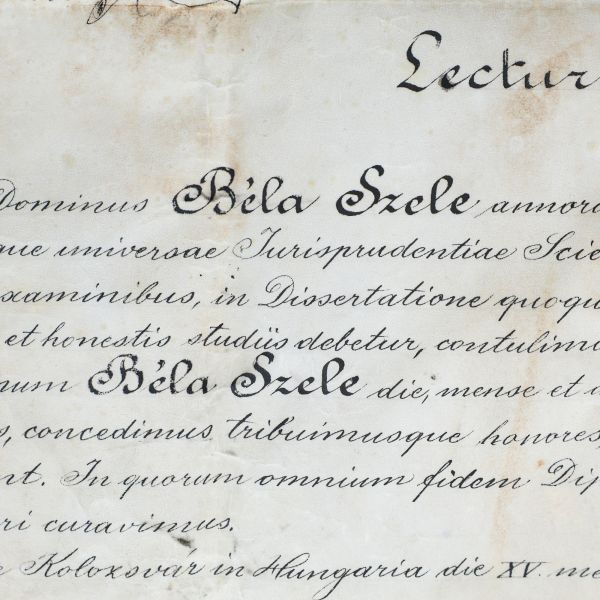 Lectur
Dominus Béla Szele annoru
que universae Jurisprudentiae Scie
xaminibus, in Dissertatione quoqu
et honestis studiis debetur, contulimu
num Béla Szele die, mense et a
s, concedimus tribuimusque honores,
nt. In quorum omnium fidem Dip
ri curavimus.
e Kolozsvár in Hungaria die XV. me